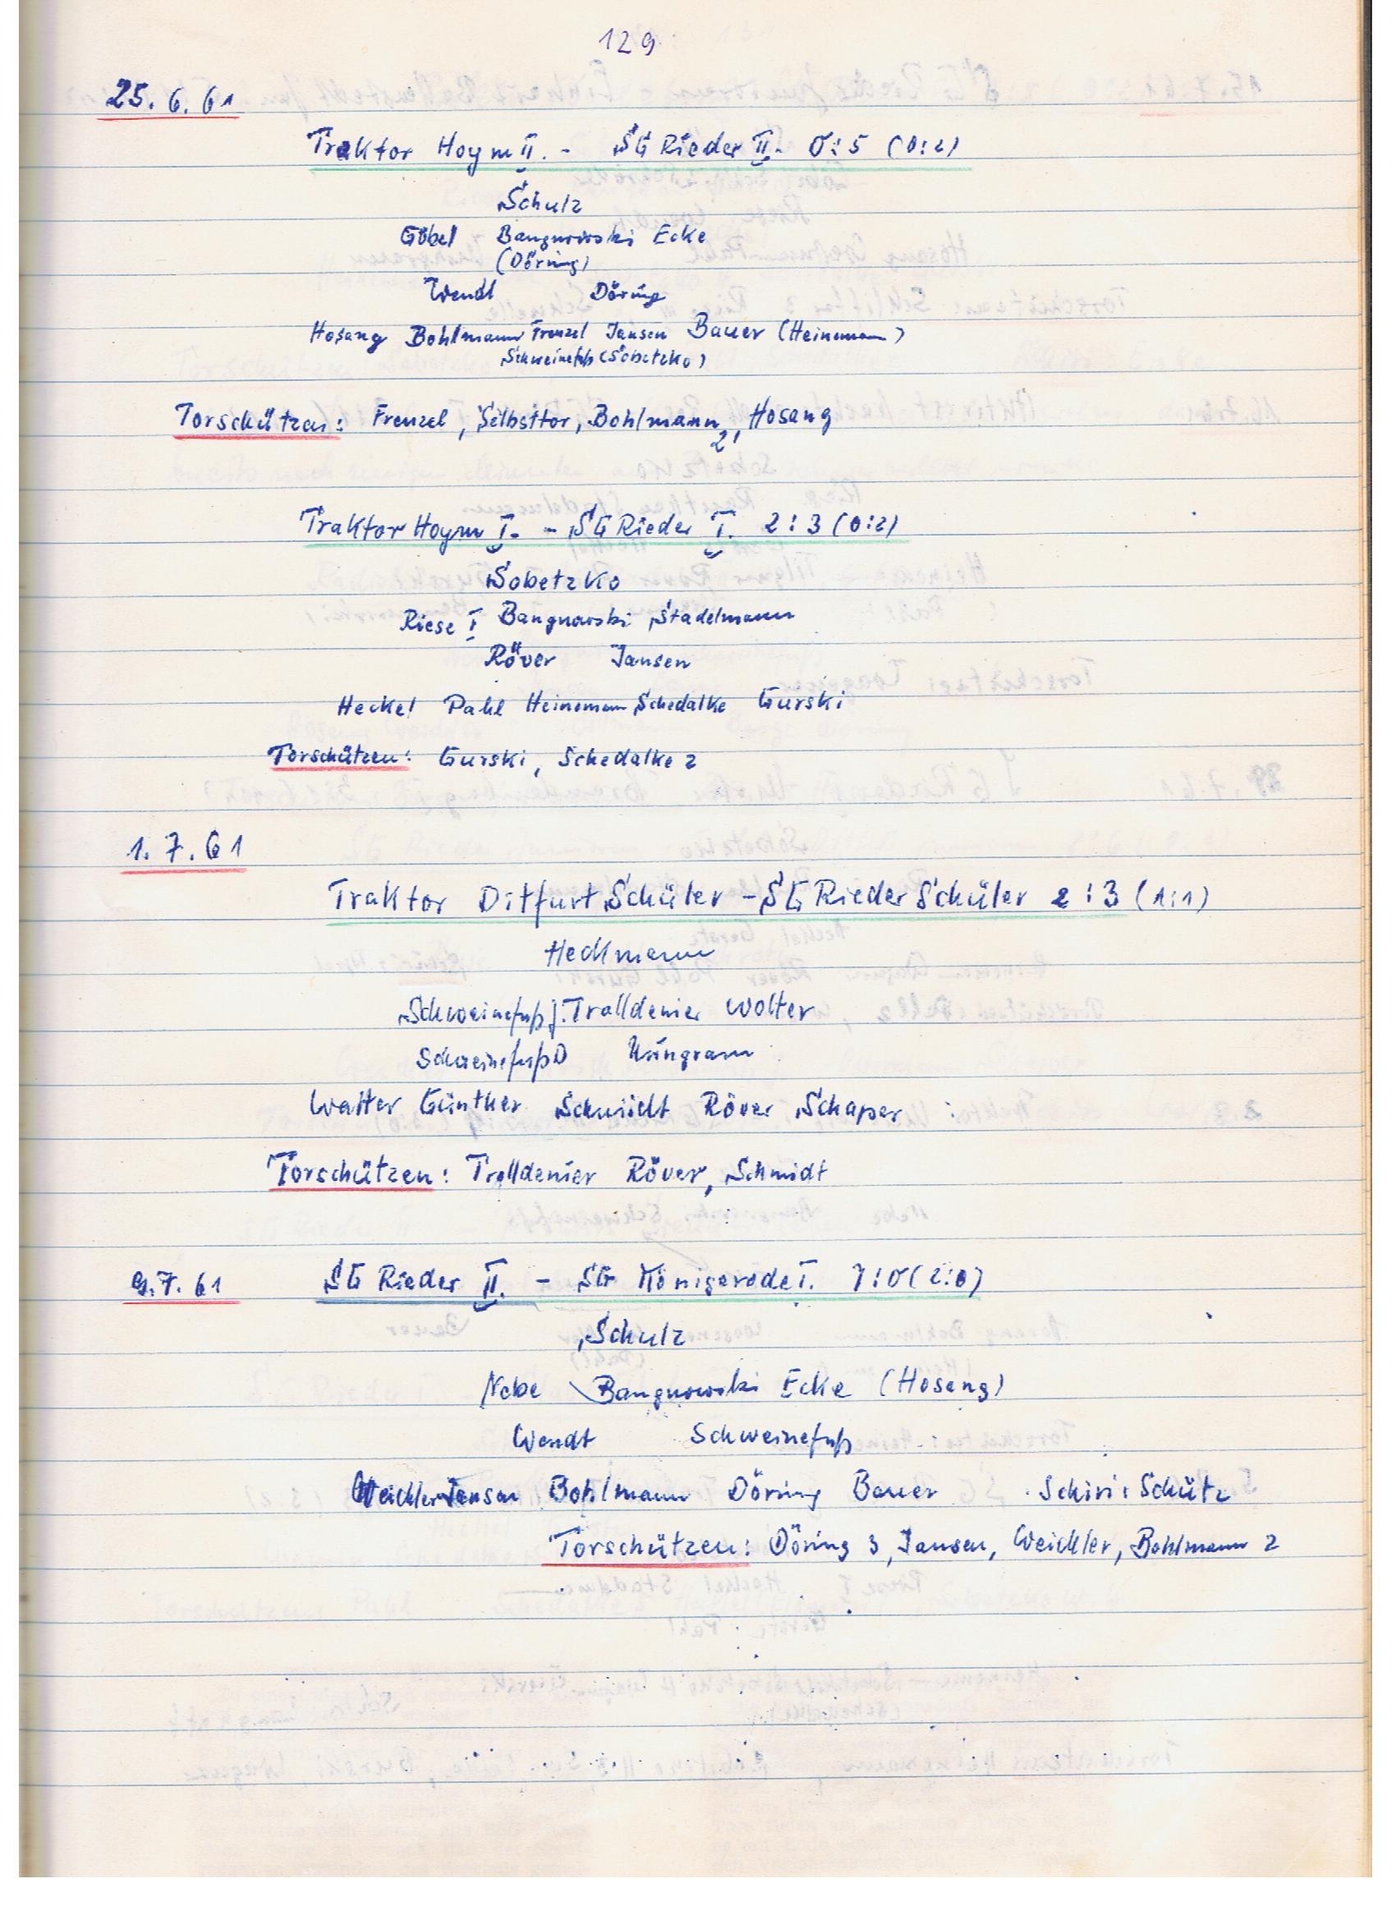 129
25.6.61
Traktor Hoym II. - SG Rieder II. 0:5 (0:2)
Schulz
Göbel Bangnowski Ecke
(Döring)
Wendt Döring
Hosang Bohlmann Frenzel Jansen Bauer (Heinemann)
Schweinefuß (Sobetzko)
Torschützen: Frenzel, Selbsttor, Bohlmann 2, Hosang
Traktor Hoym I. - SG Rieder I. 2:3 (0:2)
Sobetzko
Riese I Bangnowski Stadelmann
Röver Jansen
Heckel Pahl Heinemann Schedalke Gurski
Torschützen: Gurski, Schedalke 2
1.7.61
Traktor Ditfurt Schüler - SG Rieder Schüler 2:3 (1:1)
Heckmann
Schweinefuß J. Tralldenier Wolter
Schweinefuß D Küngram
Walter Günther Schmidt Röver Schaper
Torschützen: Tralldenier Röver, Schmidt
9.7.61 SG Rieder II. - SG Königerode I. 7:0 (2:0)
Schulz
Nebe Bangnowski Ecke (Hosang)
Wendt Schweinefuß
Weickler Jansen Bohlmann Döring Bauer Schiri: Schütz
Torschützen: Döring 3, Jansen, Weickler, Bohlmann 2